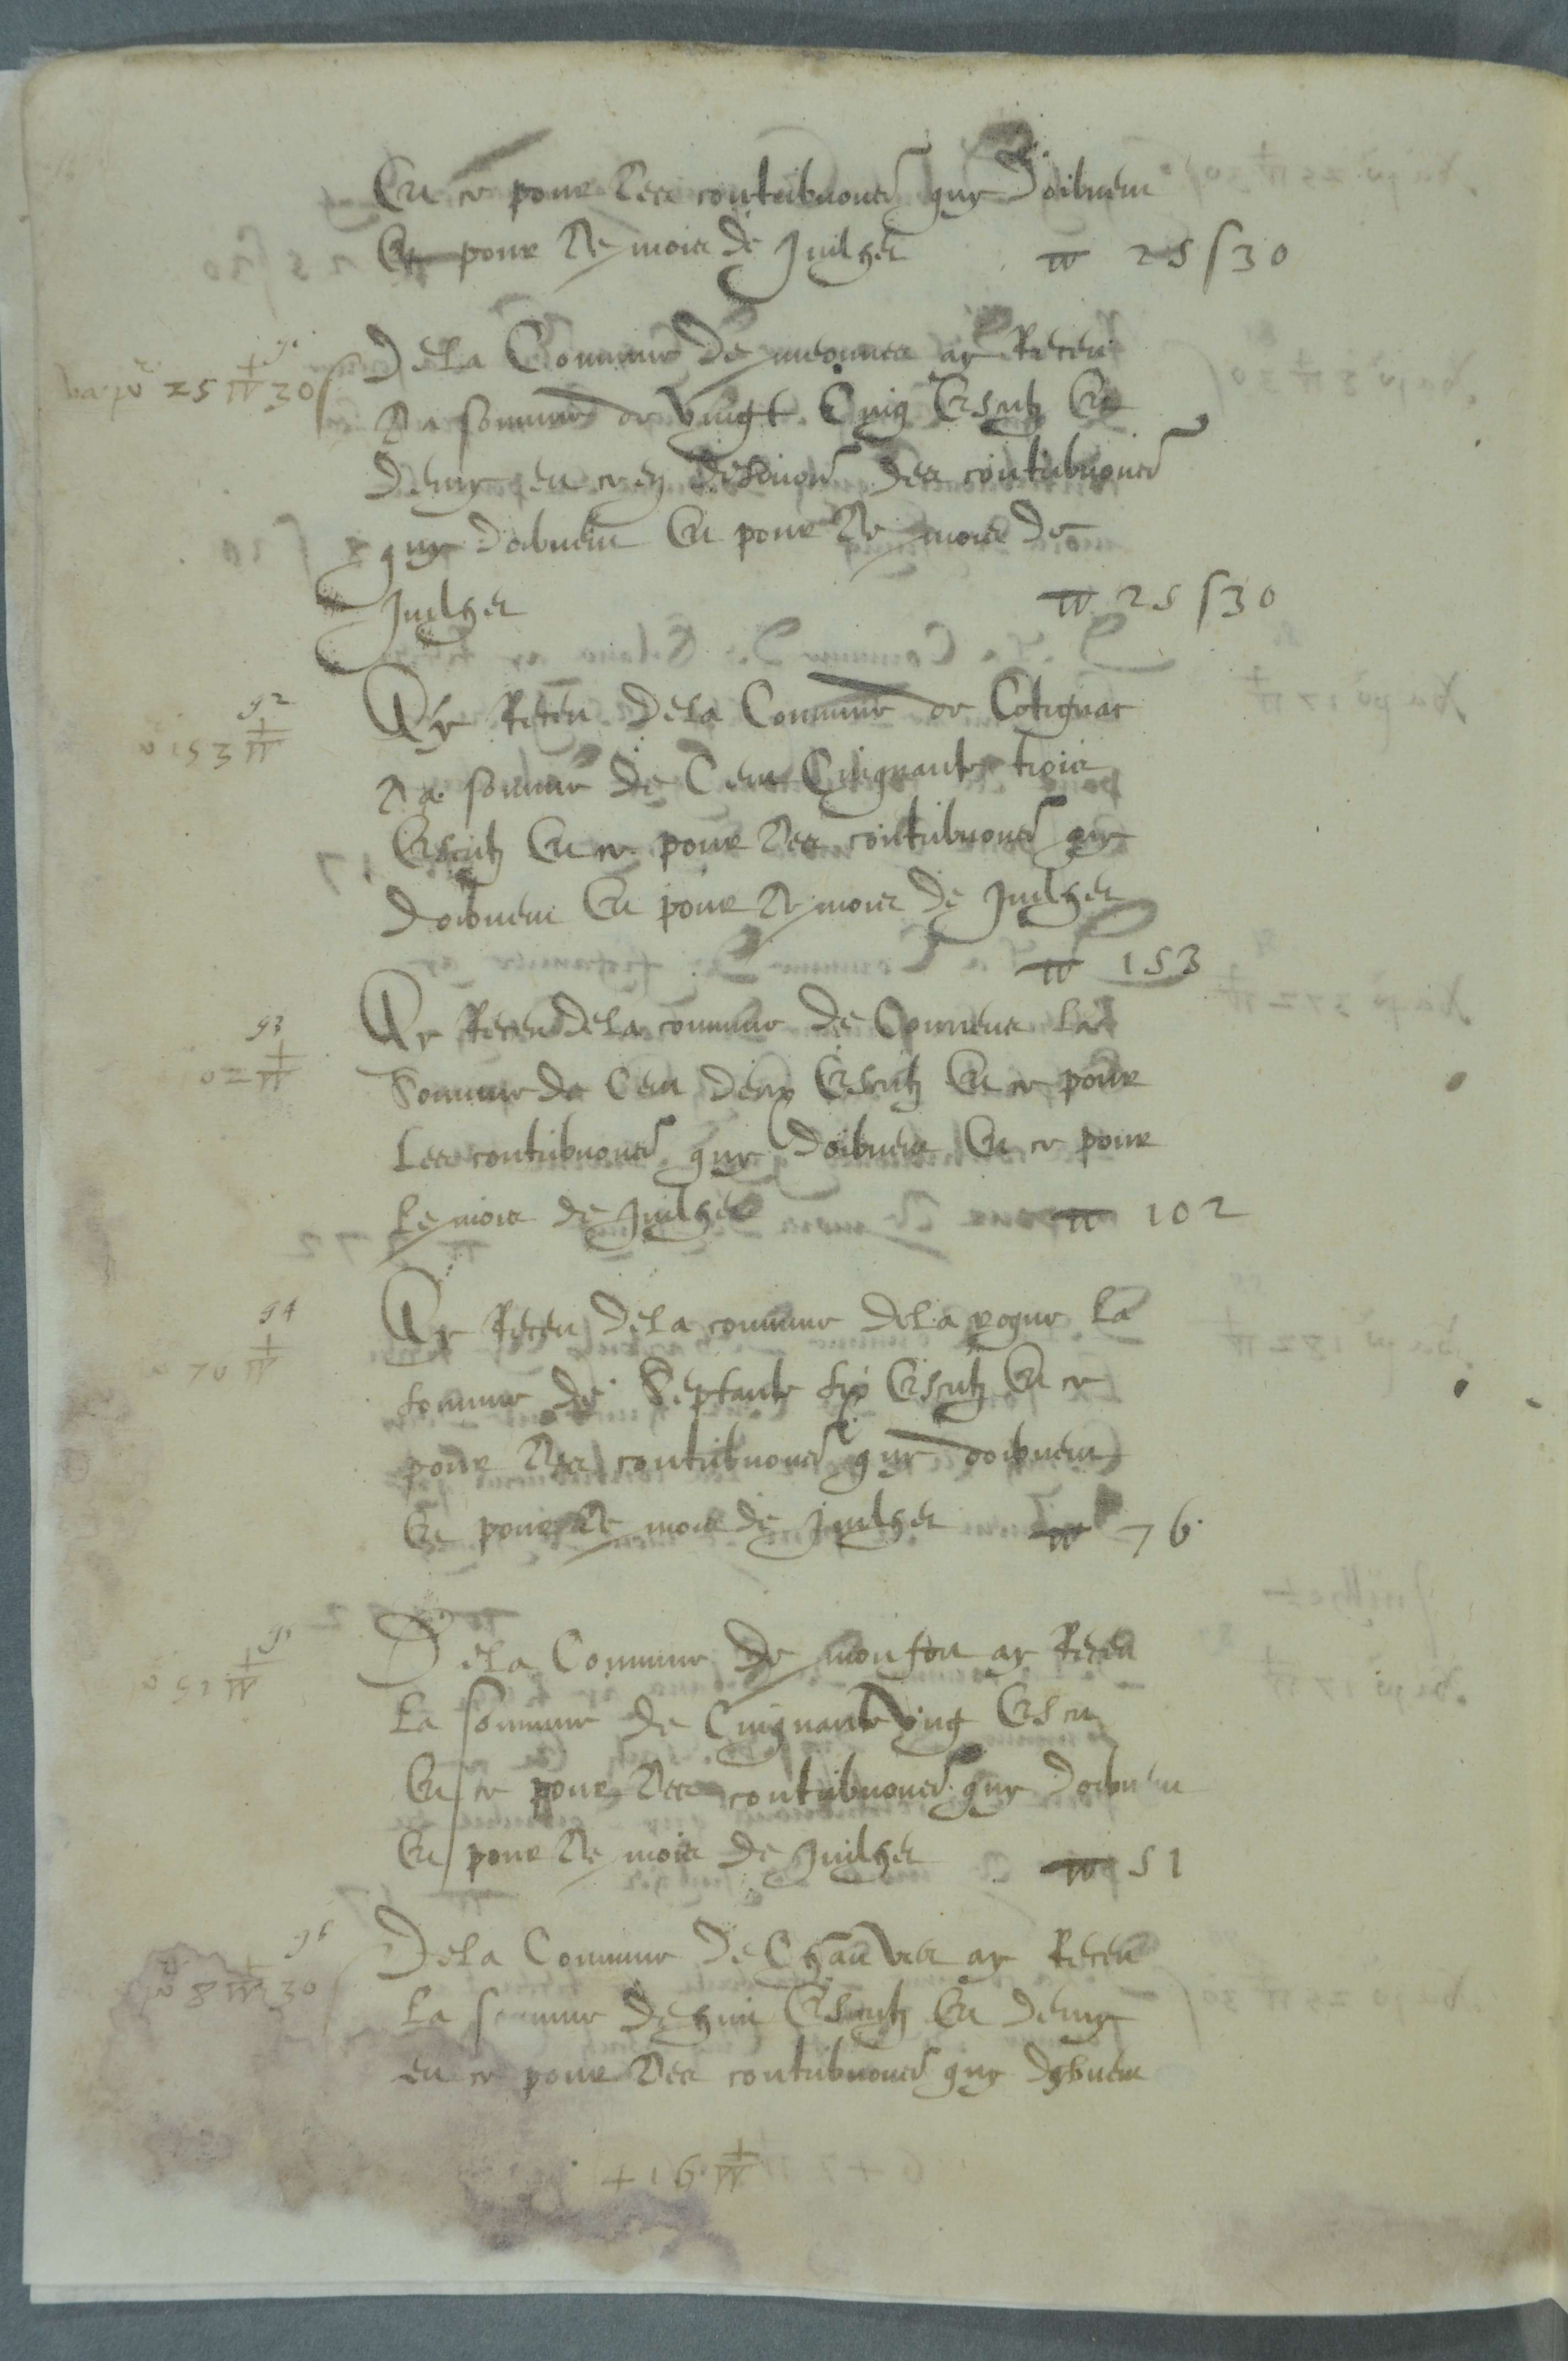 Et ce pour les contribuons quy doibuent
Et pour le mois de Juilhet 25 s 30
91
ba po 25 30 s
De la Commune de meounes ay Receu
La somme de Vingt Cinq Escutz Et
demy et ce en des contribuons
quy doibuent Et pour le mois de
Juilhet 25 s 30
92
153
Ay Receu de la Commune de Cotignac
La somme de Cent Cinquante trois
Escutz Et ce pour les contribuons quy
doibuent Et pour le mois de Juilhet
153
93
02
Ay Receu de la commune de Correns La
Somme de Cent deux Escutz Et ce pour
Les contribuons quy doibuent Et ce pour
Le mois de Juilhet 102
94
70
Ay Receu de la commune de La La
somme de Septante six Escutz Et ce
pour les contribuons quy doibuent
Et pour le mois de Juilhet 76
51
De la Commune de monfort ay Receu
La somme de Cinquante Ung Escu
Et ce pour les contribuons quy doibuent
Et pour le mois de Juilhet 51
96
8 30
De la Commune de ay Receu
La somme de huit Escutz Et demy
et ce pour les contribuons quy doibuent
+ 16